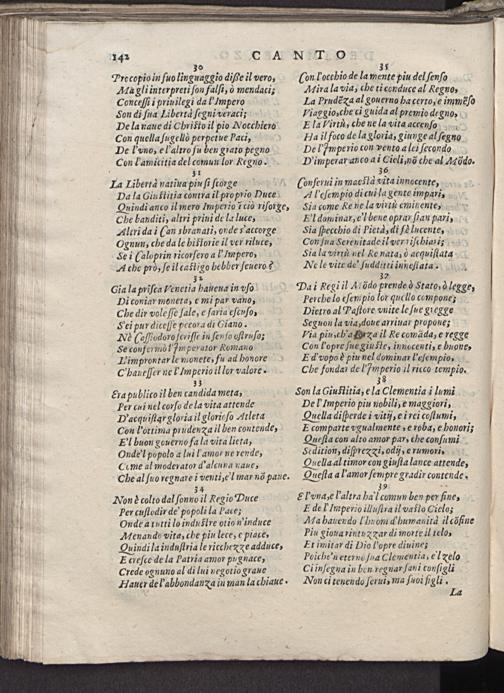 142 CANTO
30
Procopio in suo linguaggio disse il vero,
Ma gli interpreti son falsi, ò mendaci;
Concessi i priuilegi da l'Impero
Son di sua Libertà segni veraci;
De la naue di Christo il pio Nocchiero
Con quella sugellò perpetue Paci,
De l'vno, e l'altro fu ben grato pegno
Con l'amicitia del comun lor Regno.
31
La Libertà natiua piu si scorge
Da la Giustitia contra il proprio Duce
Quindi anco il mero Imperio i ciò risorge,
Che banditi, altri prini de la luce,
Altri da i Can sbranati, onde s'accorge
Ognun, che da le historie il ver riluce,
Se i Caloprin ricorsero a l'Impero,
A che prò, se il castigo hebber seuero?
32
Gia la prisca Venetia haueua in vso
Di coniar moneta, e mi par vano,
Che dir volesse sale, e saria escuso,
S'ei pur dicesse pecora di Giano.
Nè Cassiodoro scrisse in senso ostruso;
Se confermò l'Imperator Romano
L'improntar le monete, fu ad honore
C'hauesser ne l'Imperio il lor valore.
33
Era publico il ben candida meta,
Per cui nel corso de la vita attende
D'acquistar gloria il glorioso Atleta
Con l'ottima prudenza il ben contende,
E'l buon gouerno fa la vita lieta,
Onde'l popolo a lui l'amor ne rende,
Come al moderator d'alcuna naue,
Che al suo regnare i venti, e'l mar nõ paue.
34
Non è colto dal sonno il Regio Duce
Per custodir de' popoli la Pace;
Onde a tutti lo industre otio n'induce
Menando vita, che piu lece, e piace,
Quindi la industria le ricchezze adduce,
E cresce de la Patria amor pugnace,
Crede ognuno al di lui negotio graue
Hauer de l'abbondanza in man la chiaue.
35
Con l'occhio de la mente piu del senso
Mira la via, che ti conduce al Regno,
La Prudẽza al gouerno ha certo, e immẽso
Viaggio, che ci guida al premio degno,
E la Virtù, che ne la vita accenso
Ha il foco de la gloria, giunge al segno
De l'Imperio con vento a lei secondo
D'imperar anco a i Cieli, nõ che al Mõdo.
36
Conserui in maestà vita innocente,
A l'esempio di cui la gente impari,
Sia come Re ne la virtù eminente,
E'l dominar, e'l bene oprar sian pari,
Sia specchio di Pietà, di fè lucente,
Con sua Serenitade il ver rischiari;
Sia la virtù nel Re nata, ò acquistata
Ne le vite de' sudditi innestata.
37
Da i Regi il Mõdo prende ò Stato, ò legge,
Perche lo esempio lor quello compone;
Dietro al Pastore vnite le sue gregge
Seguon la via, doue arriuar propone;
Via piu, ch'a forza il Re comãda, e regge
Con l'opre sue giuste, innocenti, e buone,
E d'vopo è piu nel dominar l'esempio,
Che fondar de l'Imperio il ricco tempio.
38
Son la Giustitia, e la Clementia i lumi
De l'Imperio piu nobili, e maggiori,
Quella disperde i vitij, e i rei costumi,
E comparte vgualmente, e roba, e honori;
Questa con alto amor par, che consumi
Sedition, disprezzi, odij, e rumori,
Quella al timor con giusta lance attende,
Questa a l'amor sempre gradir contende.
39
E l'vna, e l'altra ha'l comun ben per fine,
E de l'Imperio illustra il vasto Cielo;
Ma hauendo l'huom d'humanità il cõfine
Piu gioua rintuzzar di morte il telo,
Et imitar di Dio l'opre diuine;
Poiche'n eterno sua Clementia, e'l zelo
Ci insegna in ben regnar sani consigli
Non ci tenendo serui, ma suoi figli.
La